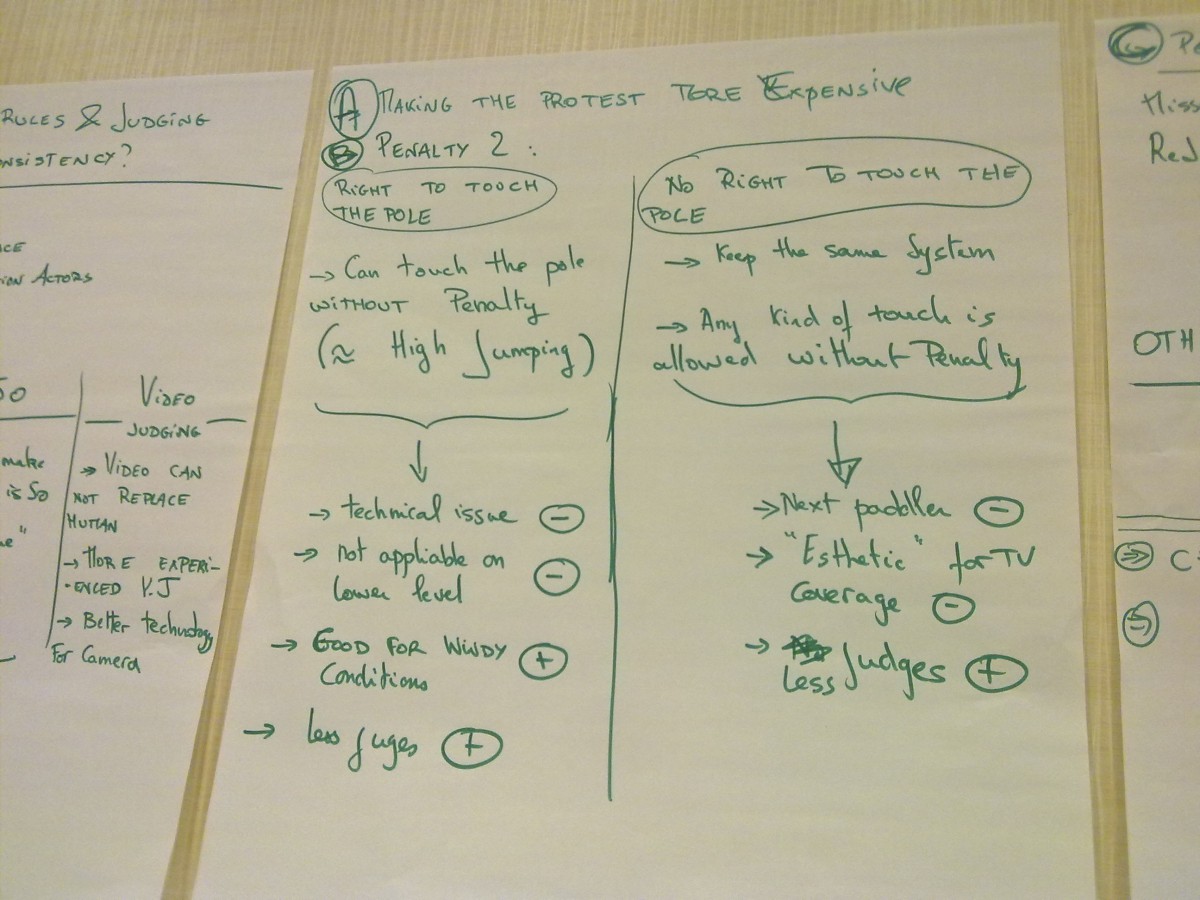 RULES & JUDGING
NSISTENCY?
CE
ION ACTORS
SO
make
is So
VIDEO
JUDGING
→ VIDEO CAN
NOT REPLACE
HUMAN
→ MORE EXPERI-
ENCED V.J
→ Better technology
For Camera
A MAKING THE PROTEST MORE EXpensive
B PENALTY 2 :
RIGHT TO TOUCH
THE POLE
→ Can touch the pole
WITHOUT Penalty
(≈ High Jumping)
→ technical issue −
→ not appliable on
lower level −
→ GOOD FOR WINDY
Conditions +
→ less juges +
NO RIGHT TO TOUCH THE
POLE
→ Keep the same System
→ Any kind of touch is
allowed without Penalty
→ Next paddler −
→ "Esthetic" for TV
Coverage −
→ less Judges +
Miss
OTH